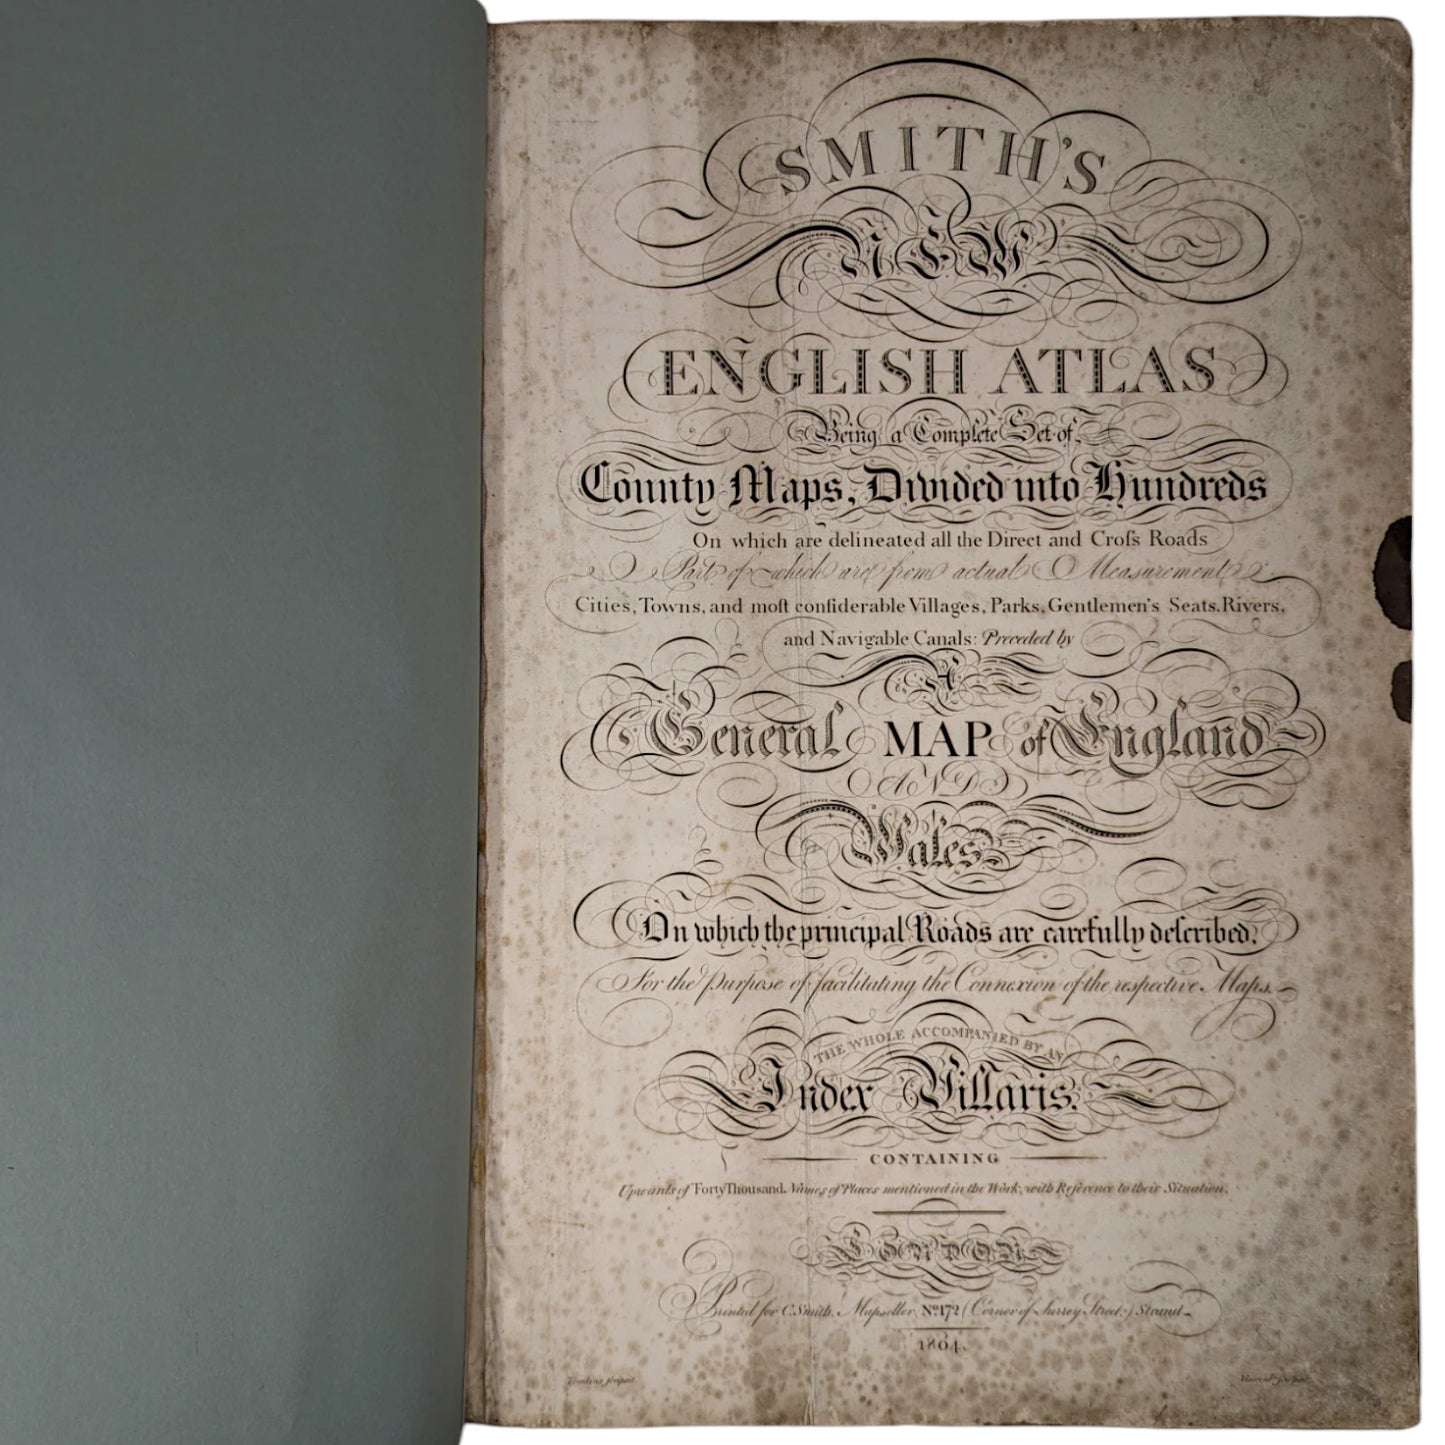 SMITH'S
NEW
ENGLISH ATLAS
Being a Complete Set of
County Maps, Divided into Hundreds
On which are delineated all the Direct and Croſs Roads
Part of which are from actual Measurement
Cities, Towns, and moſt conſiderable Villages, Parks, Gentlemen's Seats, Rivers,
and Navigable Canals: Preceded by
A
General MAP of England
AND
Wales
On which the principal Roads are carefully deſcribed,
For the Purpose of facilitating the Connexion of the respective Maps.
THE WHOLE ACCOMPANIED BY AN
Index Villaris,
CONTAINING
Upwards of Forty Thousand Names of Places mentioned in the Work, with Reference to their Situation.
LONDON
Printed for C. Smith, Mapseller, No. 172 (Corner of Surrey Street,) Strand
1804.
Tomkins ſcripsit
Vincent ſculpsit